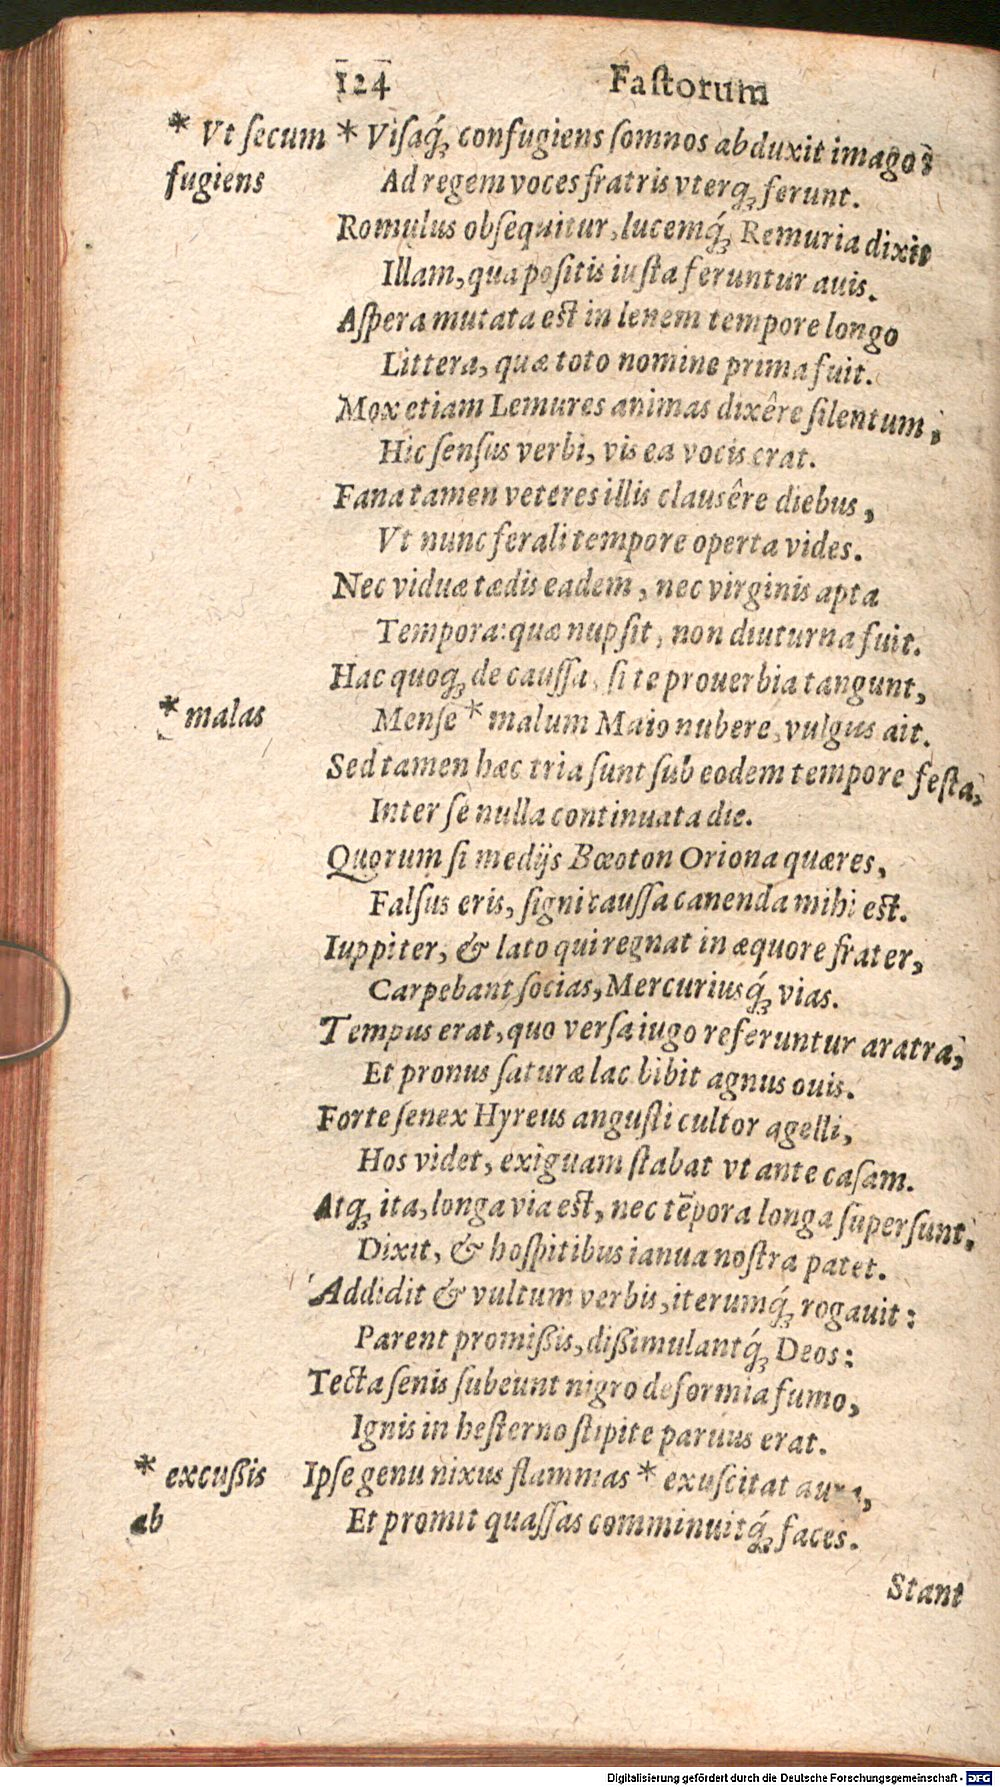 124 Fastorum
* Vt secum * Visaq́; confugiens somnos abduxit imago:
fugiens Ad regem voces fratris vterq; ferunt.
Romulus obsequitur, lucemq́; Remuria dixit
Illam, qua positis iusta feruntur auis.
Aspera mutata est in lenem tempore longo
Littera, quæ toto nomine prima fuit.
Mox etiam Lemures animas dixêre silentum,
Hic sensus verbi, vis ea vocis erat.
Fana tamen veteres illis clausêre diebus,
Vt nunc ferali tempore operta vides.
Nec viduæ tædis eadem, nec virginis apta
Tempora: quæ nupsit, non diuturna fuit.
Hac quoq; de caussa, si te prouerbia tangunt,
* malas Mense * malum Maio nubere, vulgus ait.
Sed tamen hæc tria sunt sub eodem tempore festa,
Inter se nulla continuata die.
Quorum si medijs Bœoton Oriona quæres,
Falsus eris, signi caussa canenda mihi est.
Iuppiter, & lato qui regnat in æquore frater,
Carpebant socias, Mercuriusq́; vias.
Tempus erat, quo versa iugo referuntur aratra,
Et pronus saturæ lac bibit agnus ouis.
Forte senex Hyreus angusti cultor agelli,
Hos videt, exiguam stabat vt ante casam.
Atq; ita, longa via est, nec tēpora longa supersunt,
Dixit, & hospitibus ianua nostra patet.
Addidit & vultum verbis, iterumq́; rogauit:
Parent promißis, dißimulantq́; Deos:
Tecta senis subeunt nigro deformia fumo,
Ignis in hesterno stipite paruus erat.
* excußis Ipse genu nixus flammas * exuscitat aura,
ab Et promit quassas comminuitq́; faces.
Stant
Digitalisierung gefördert durch die Deutsche Forschungsgemeinschaft - DFG